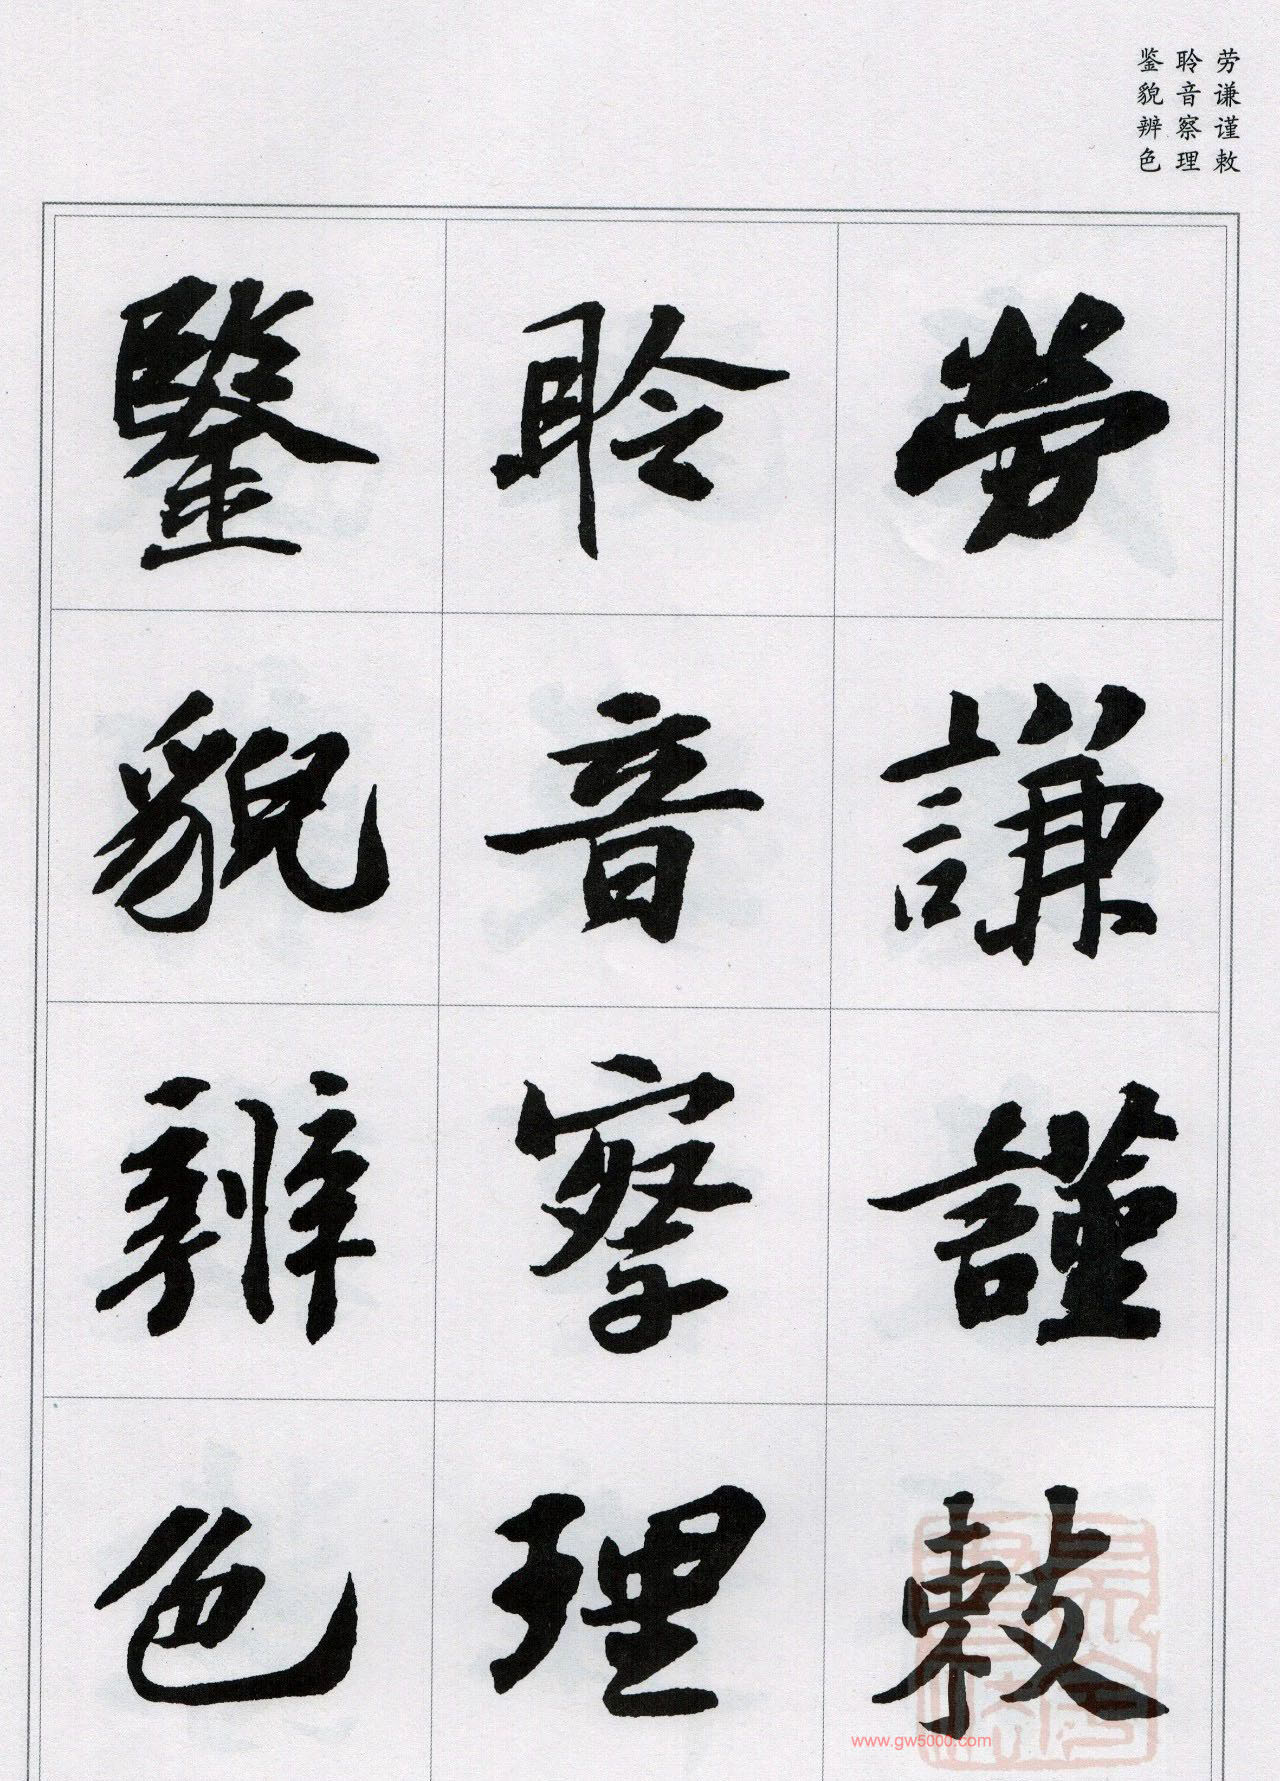 劳谦谨敕
聆音察理
鉴貌辨色
勞謙謹敕
聆音察理
鑒貌辨色
www.gw5000.com